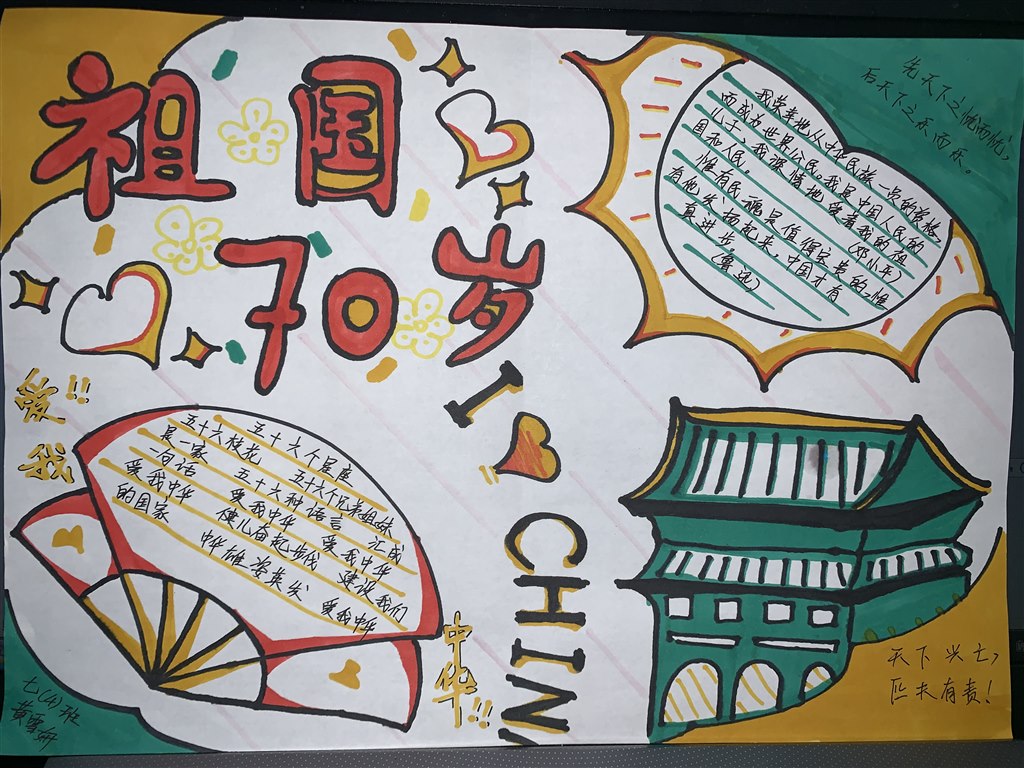 祖国
70岁
先天下之忧而忧,
后天下之乐而乐。
我荣幸地从中华民族一员的资格,
而成为世界公民。我是中国人民的
儿子,我深情地爱着我的祖
国和人民。 (邓小平)
惟有民魂是值得宝贵的,惟
有他发扬起来,中国才有
真进步。
(鲁迅)
I
CHIN
爱我!!
五十六个星座
五十六枝花 五十六个兄弟姐妹
是一家 五十六种语言 汇成
一句话 爱我中华 爱我中华
爱我中华 健儿奋起步伐 建设我们
的国家 中华雄姿英发 爱我中华
中华!!
天下兴亡,
匹夫有责!
七(4)班